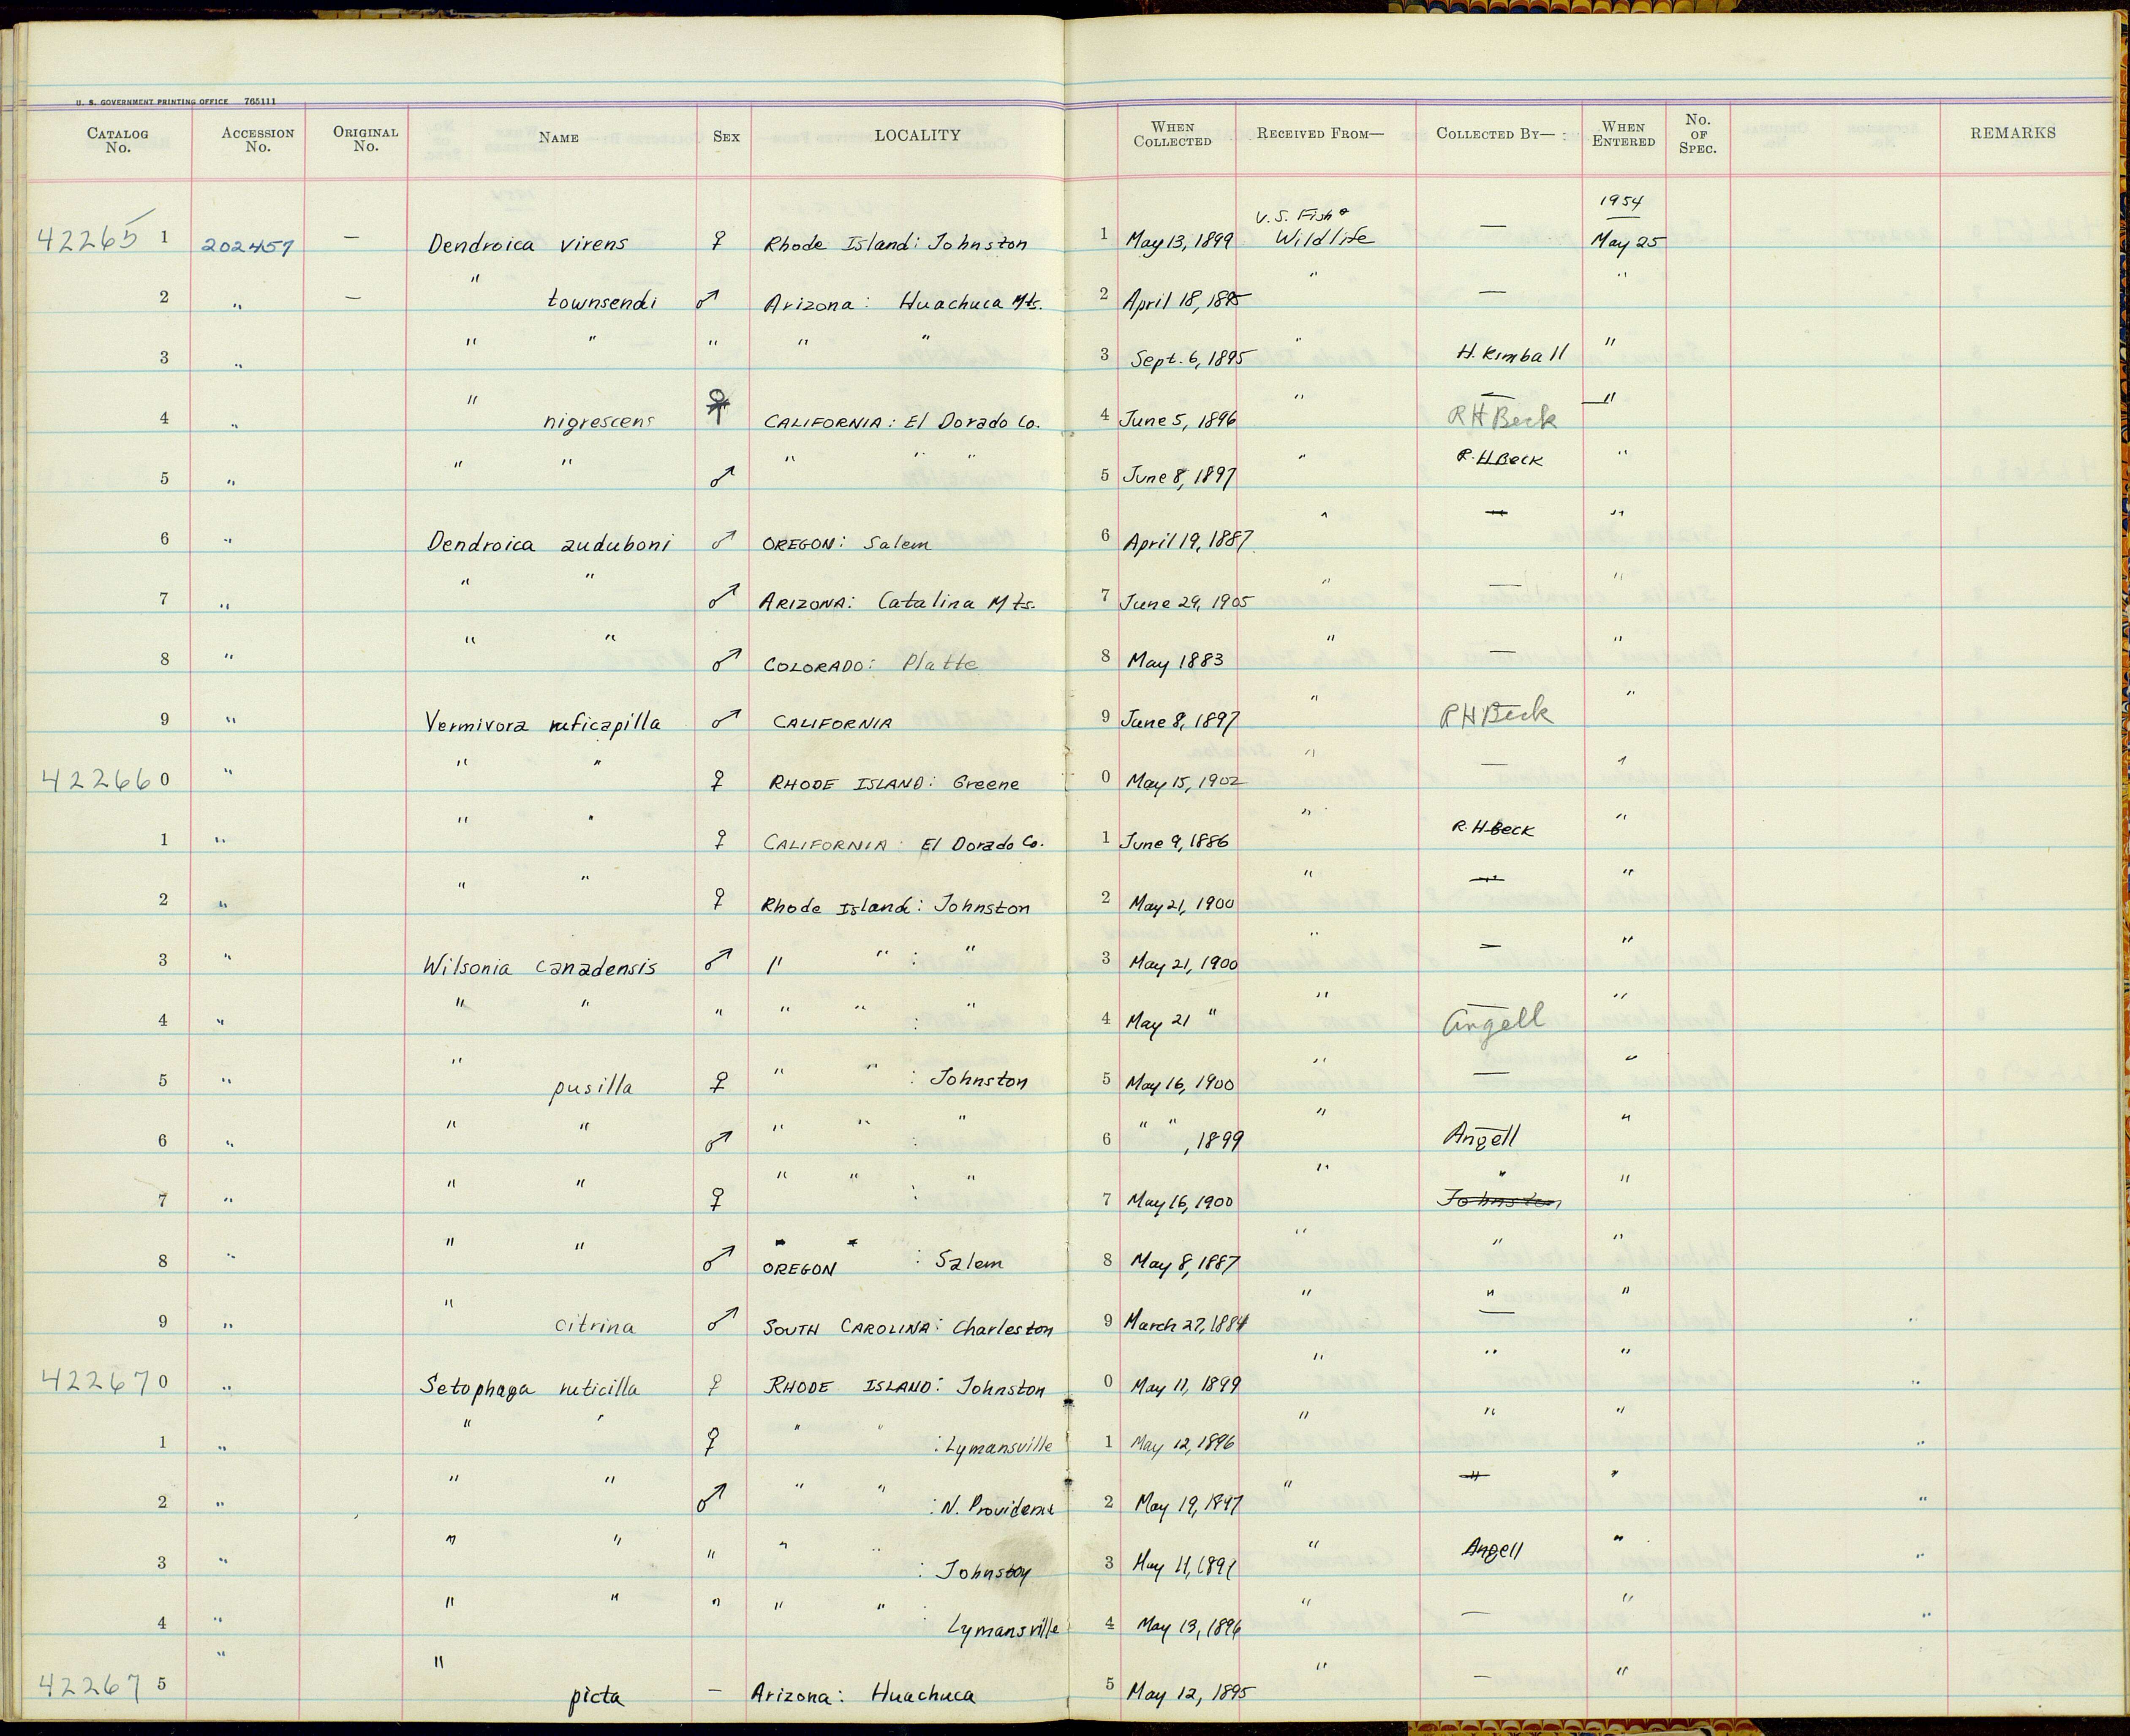 U. S. GOVERNMENT PRINTING OFFICE 765111
CATALOG No. ACCESSION No. ORIGINAL No. NAME SEX LOCALITY WHEN COLLECTED RECEIVED FROM— COLLECTED BY— WHEN ENTERED No. OF SPEC. REMARKS
1954
42265 1 202457 — Dendroica virens ♀ Rhode Island: Johnston 1 May 13, 1899 U.S. Fish & Wildlife — May 25
2 " — " townsendi ♂ Arizona: Huachuca Mts. 2 April 18, 1895 " — "
3 " " " " " " 3 Sept. 6, 1895 " H. Kimball "
4 " " nigrescens ♀ CALIFORNIA: El Dorado Co. 4 June 5, 1896 " — RH Beck "
5 " " " ♂ " " " 5 June 8, 1897 " R.H Beck "
6 " Dendroica auduboni ♂ OREGON: Salem 6 April 19, 1887 " — "
7 " " " ♂ ARIZONA: Catalina Mts. 7 June 29, 1905 " — "
8 " " " ♂ COLORADO: Platte 8 May 1883 " — "
9 " Vermivora ruficapilla ♂ CALIFORNIA 9 June 8, 1897 " RH Beck "
422660 " " " ♀ RHODE ISLAND: Greene 0 May 15, 1902 " — "
1 " " " ♀ CALIFORNIA: El Dorado Co. 1 June 9, 1886 " R. H Beck "
2 " " " ♀ Rhode Island: Johnston 2 May 21, 1900 " — "
3 " Wilsonia canadensis ♂ " " : " 3 May 21, 1900 " — "
4 " " " " " " : " 4 May 21 " " Angell "
5 " " pusilla ♀ " " : Johnston 5 May 16, 1900 " — "
6 " " " ♂ " " : " 6 " " , 1899 " Angell "
7 " " " ♀ " " : " 7 May 16, 1900 " " Johnston "
8 " " " ♂ OREGON : Salem 8 May 8, 1887 " " "
9 " " citrina ♂ SOUTH CAROLINA: Charleston 9 March 27, 1884 " " — "
422670 " Setophaga ruticilla ♀ RHODE ISLAND: Johnston 0 May 11, 1899 " " " "
1 " " " ♀ " " : Lymansville 1 May 12, 1896 " " " "
2 " " " ♂ " " : N. Providence 2 May 19, 1897 " " " "
3 " " " " " " : Johnston 3 May 11, 1891 " Angell " "
4 " " " " " " : Lymansville 4 May 13, 1896 " — " "
42267 5 " " picta — Arizona: Huachuca 5 May 12, 1895 " — "